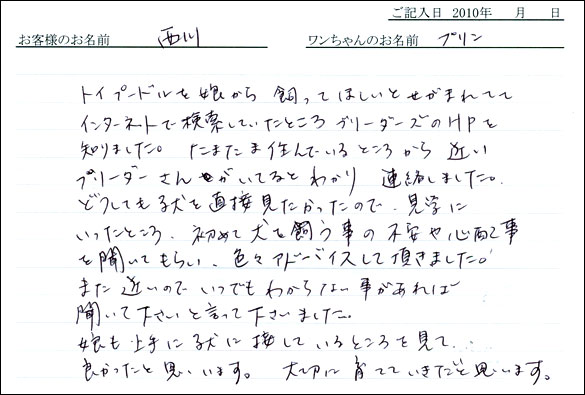 ご記入日 2010年 月 日
お客様のお名前 西川 ワンちゃんのお名前 プリン
トイプードルを娘から飼ってほしいとせがまれてて
インターネットで検索していたところブリーダーズのHPを
知りました。たまたま住んでいるところから近い
ブリーダーさんがいてるとわかり連絡しました。
どうしても子犬を直接見たかったので、見学に
いったところ、初めて犬を飼う事の不安や心配事
を聞いてもらい、色々アドバイスして頂きました。
また近いのでいつでもわからない事があれば
聞いて下さいと言って下さいました。
娘も上手に子犬に接しているところを見て、
良かったと思います。大切に育てていきたいと思います。